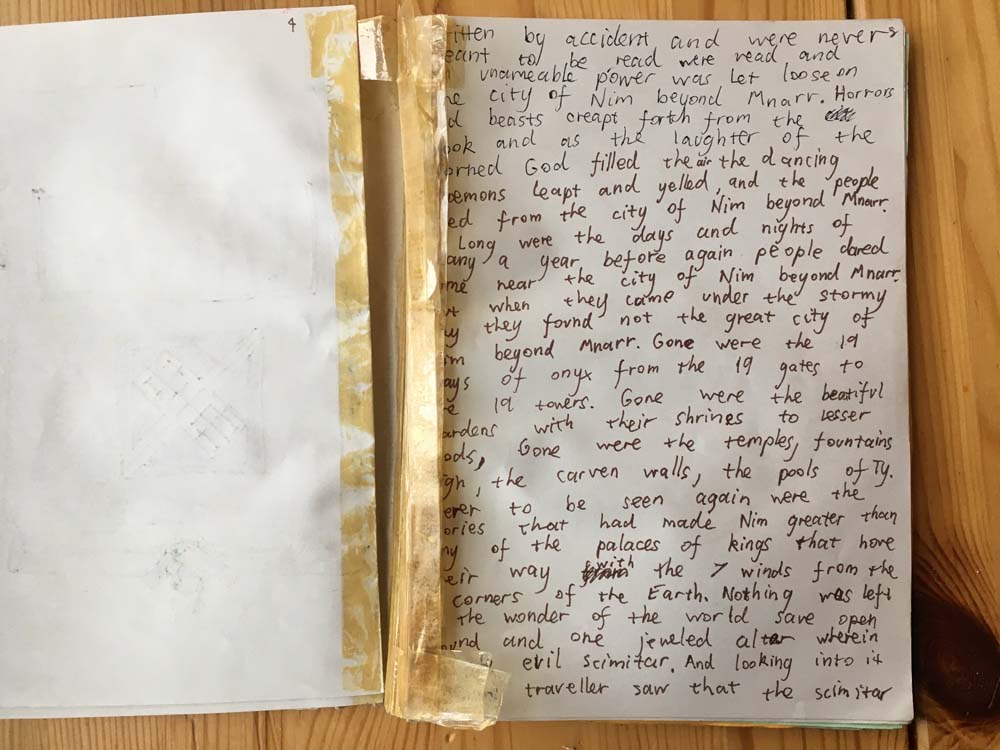 4
itten by accident and were never
eant to be read were read and
unameable power was let loose on
he city of Nim beyond Mnarr. Horrors
d beasts creapt forth from the
ook and as the laughter of the
orned God filled the air the dancing
oemons leapt and yelled, and the people
ed from the city of Nim beyond Mnarr.
Long were the days and nights of
any a year before again people dared
ome near the city of Nim beyond Mnarr.
ut when they came under the stormy
y they found not the great city of
im beyond Mnarr. Gone were the 19
ays of onyx from the 19 gates to
e 19 towers. Gone were the beatiful
ardens with their shrines to lesser
ods, Gone were the temples, fountains
gh, the carven walls, the pools of Ty.
ever to be seen again were the
ories that had made Nim greater than
ny of the palaces of kings that hove
eir way with the 7 winds from the
corners of the Earth. Nothing was left
the wonder of the world save open
ound and one jeweled alter wherein
evil scimitar. And looking into it
traveller saw that the scimitar